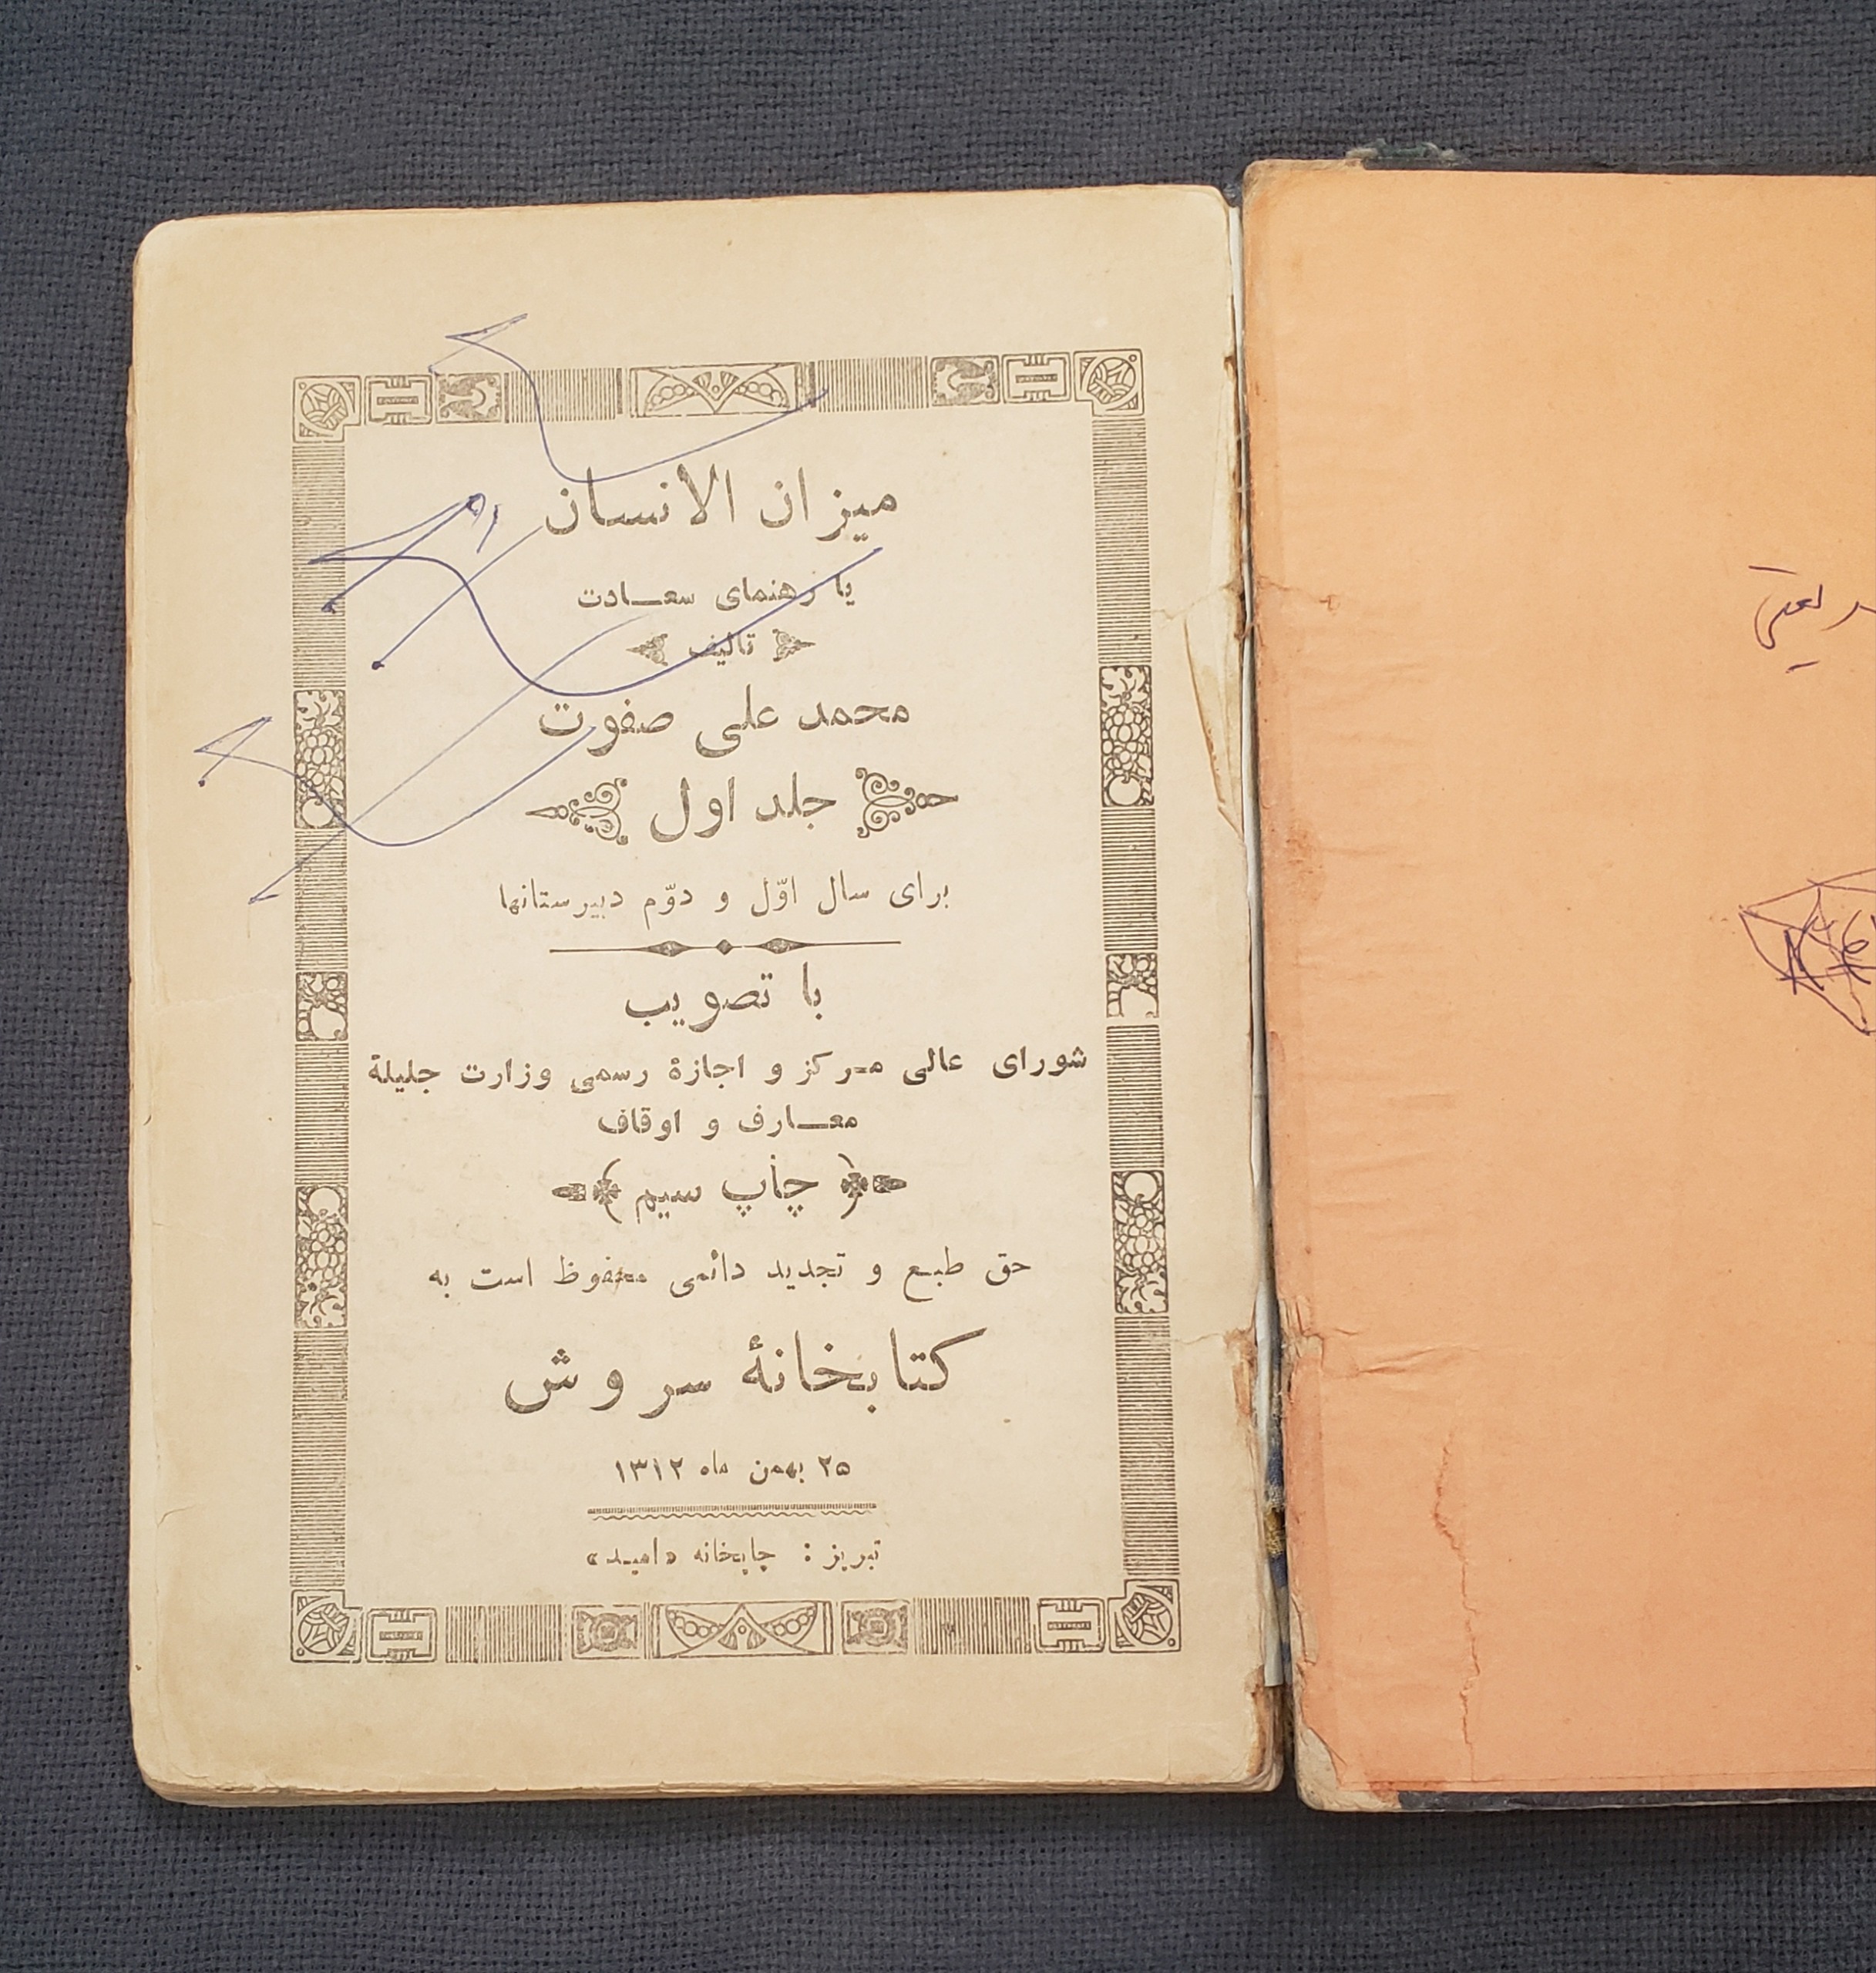 میزان الانسان
یا رهنمای سعادت
تالیف
محمد علی صفوت
جلد اول
برای سال اوّل و دوّم دبیرستانها
با تصویب
شورای عالی مرکز و اجازهٔ رسمی وزارت جلیلهٔ
معارف و اوقاف
چاپ سیم
حق طبع و تجدید دائمی محفوظ است به
کتابخانهٔ سروش
۲۵ بهمن ماه ۱۳۱۲
تبریز : چاپخانه «امید»